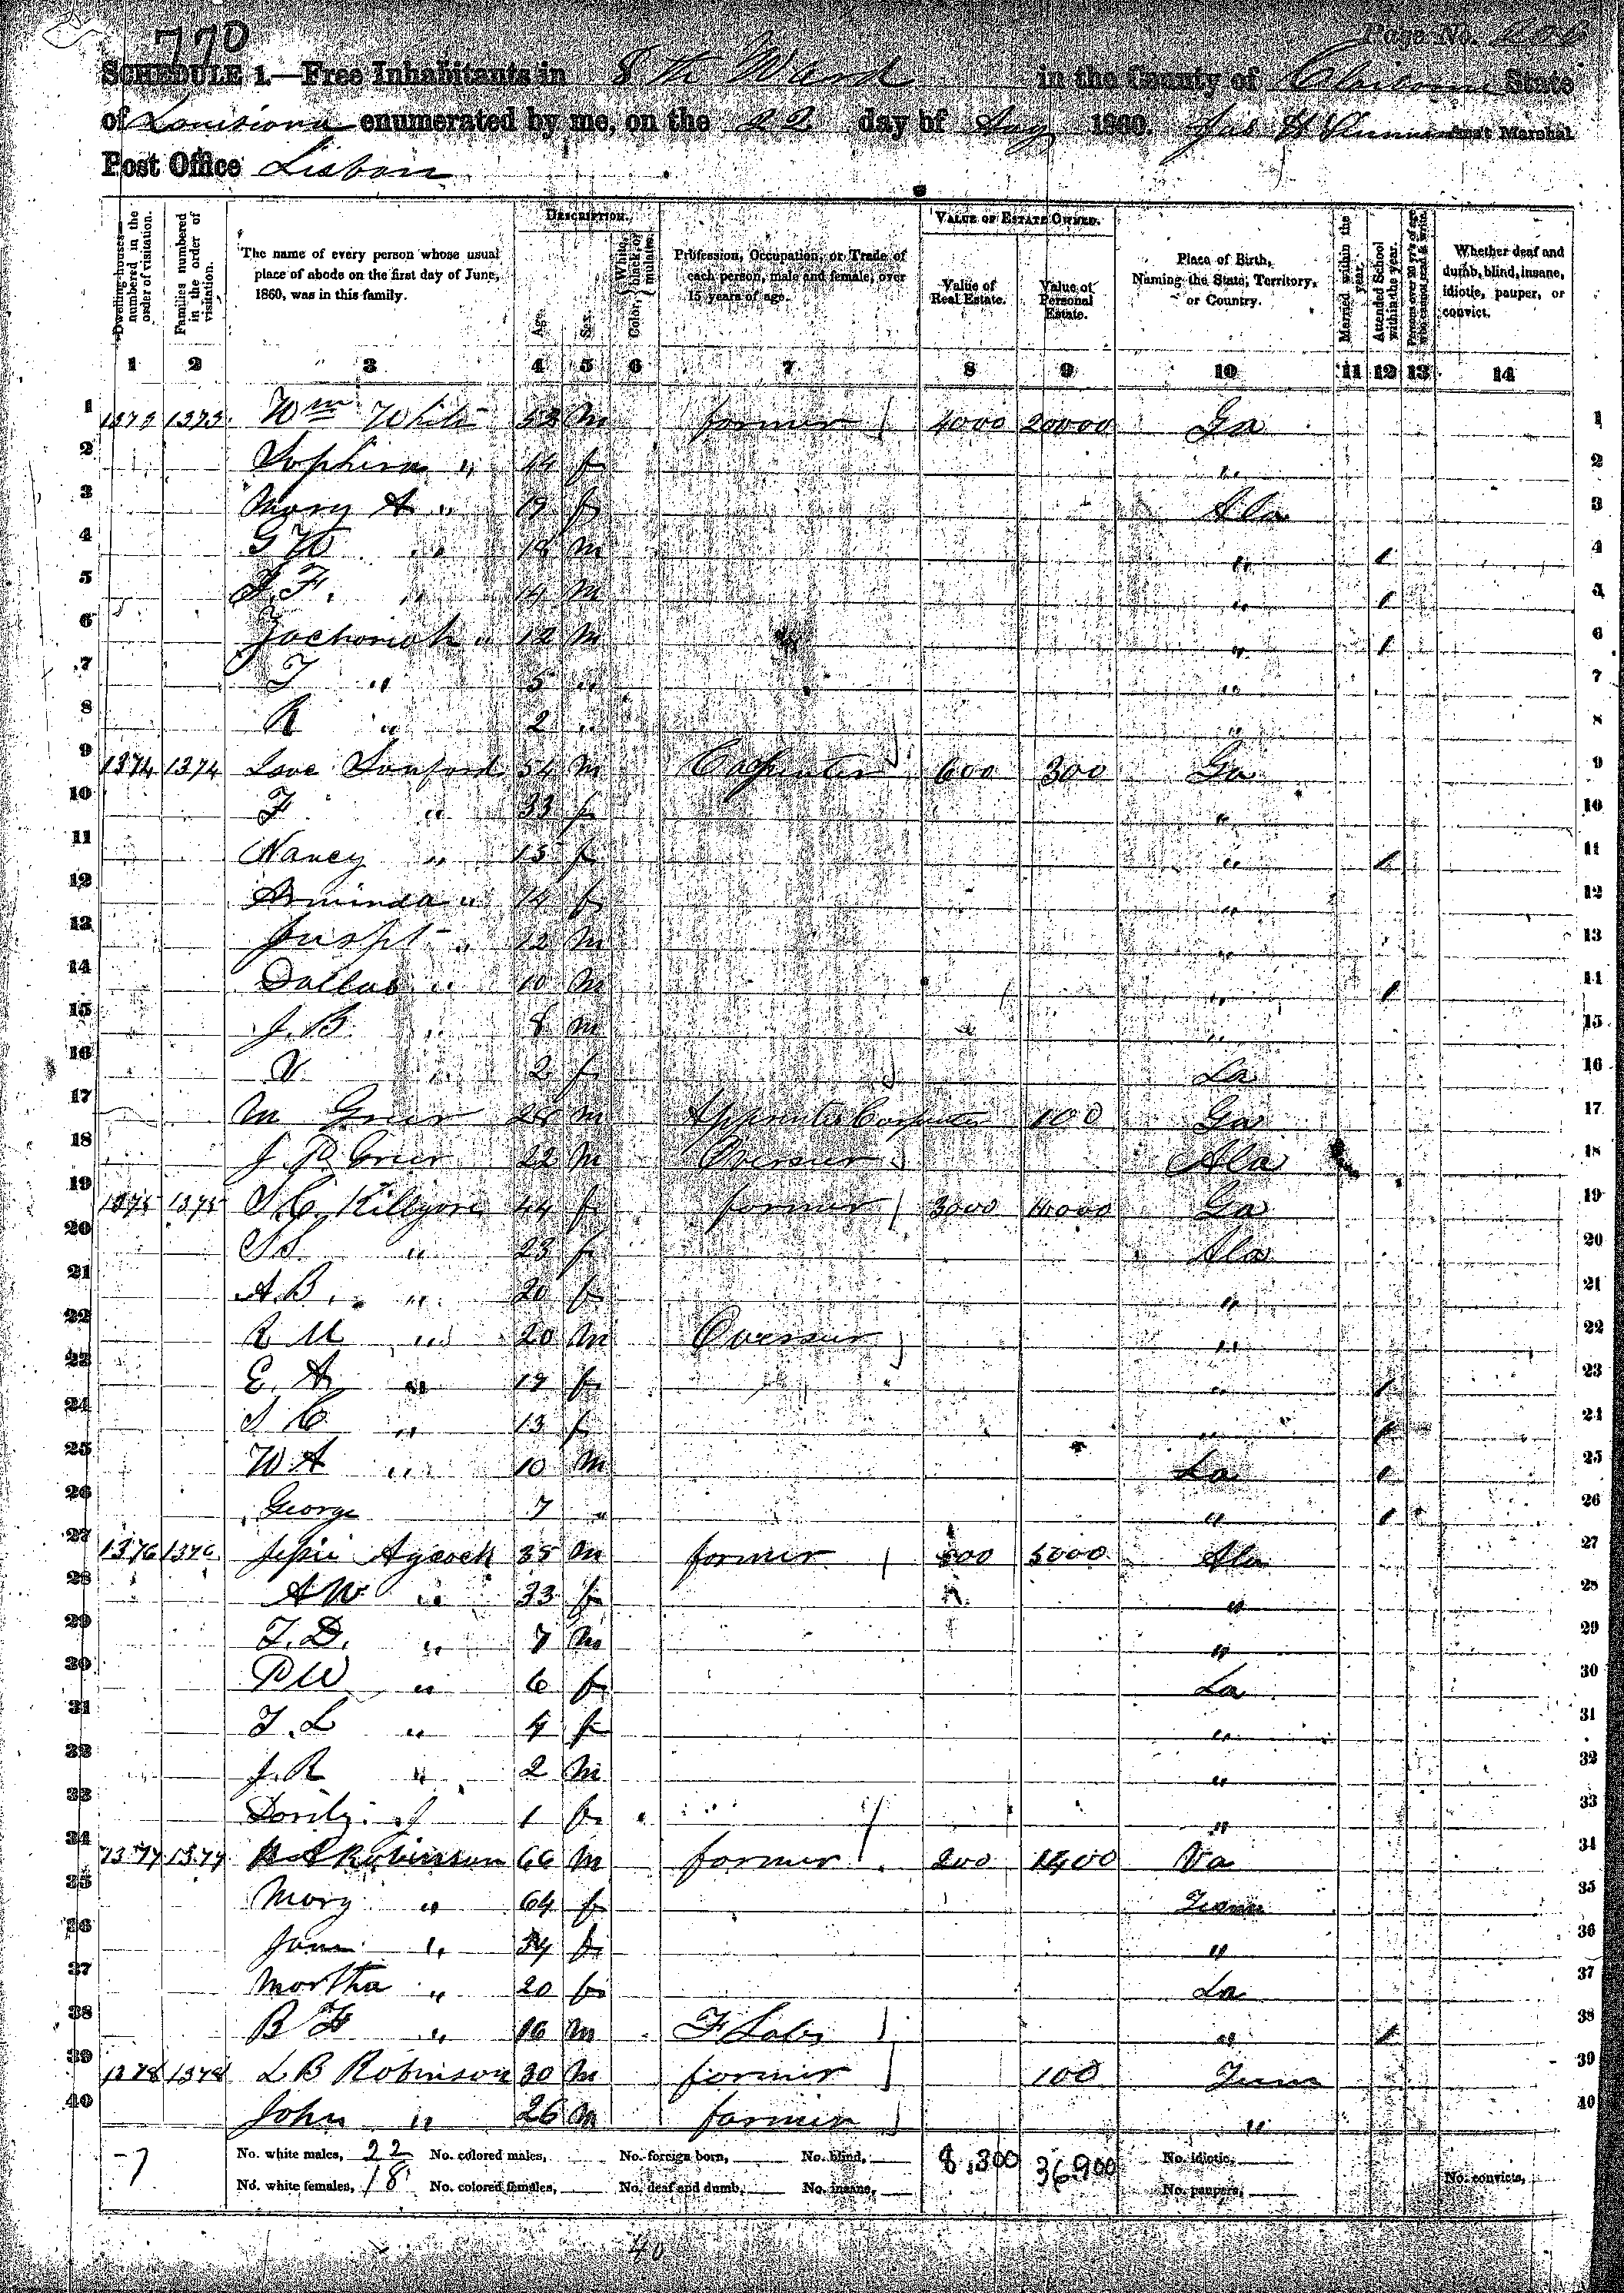 770
Page No.
SCHEDULE 1.—Free Inhabitants in 8th Ward in the County of Claiborne State
of Louisiana enumerated by me, on the 22 day of Aug 1860. Jas H Ass't Marshal.
Post Office Lisbon
Dwelling-houses—numbered in the order of visitation.
Families numbered in the order of visitation.
The name of every person whose usual place of abode on the first day of June, 1860, was in this family.
DESCRIPTION.
Age.
Sex.
Color, White, black, or mulatto.
Profession, Occupation, or Trade of each person, male and female, over 15 years of age.
VALUE OF ESTATE OWNED.
Value of Real Estate.
Value of Personal Estate.
Place of Birth, Naming the State, Territory, or Country.
Married within the year.
Attended School within the year.
Persons over 20 y'rs of age who cannot read & write.
Whether deaf and dumb, blind, insane, idiotic, pauper, or convict.
1 2 3 4 5 6 7 8 9 10 11 12 13 14
1 1373 1373 Wm White 53 M farmer 4000 20000 Ga 1
2 Sophira " 44 f " 2
3 Mary A " 19 f Ala 3
4 G W " 18 M " / 4
5 J. F. " 14 M " / 5
6 Zachariah " 12 M " / 6
7 T " 5 " " 7
8 R " 2 " " 8
9 1374 1374 Sanford 54 M Carpenter 600 300 Ga 9
10 F " 33 f " 10
11 Nancy " 15 f " / 11
12 Arminda " 14 f " 12
13 " 12 M 13
14 Dallas " 10 M " / 14
15 J. B " 8 M " 15
16 V " 2 f La 16
17 M Grier 25 M Carpenter 100 Ga 17
18 J. P Grier 22 M Overseer Ala 18
19 1375 1375 S. C. Killgore 44 f farmer 3000 10000 Ga 19
20 S S " 23 f Ala 20
21 A. B. " 20 f " 21
22 R M " 20 M Overseer " 22
23 E A " 17 f " / 23
24 S C " 13 f " / 24
25 W A " 10 M La / 25
26 George 7 " " / 26
27 1376 1376 Jessie Aycock 35 M farmer 500 5000 Ala 27
28 A W " 33 f " 28
29 T. D. " 7 M " 29
30 P W " 6 f La 30
31 T. L " 4 f " 31
32 J. R " 2 M " 32
33 1 f " 33
34 1377 1377 Robinson 66 M farmer 200 1400 Va 34
35 Mary " 64 f Tenn 35
36 Jane " 34 f " 36
37 Martha " 20 f La 37
38 B F " 16 M F Labr " / 38
39 1378 1378 L B Robinson 30 M farmer 100 Tenn 39
40 John " 26 M farmer " 40
No. white males, 22 No. colored males, No. foreign born, No. blind, 8,300 36900 No. idiotic,
No. white females, 18 No. colored females, No. deaf and dumb, No. insane, No. paupers, No. convicts,
-7
40